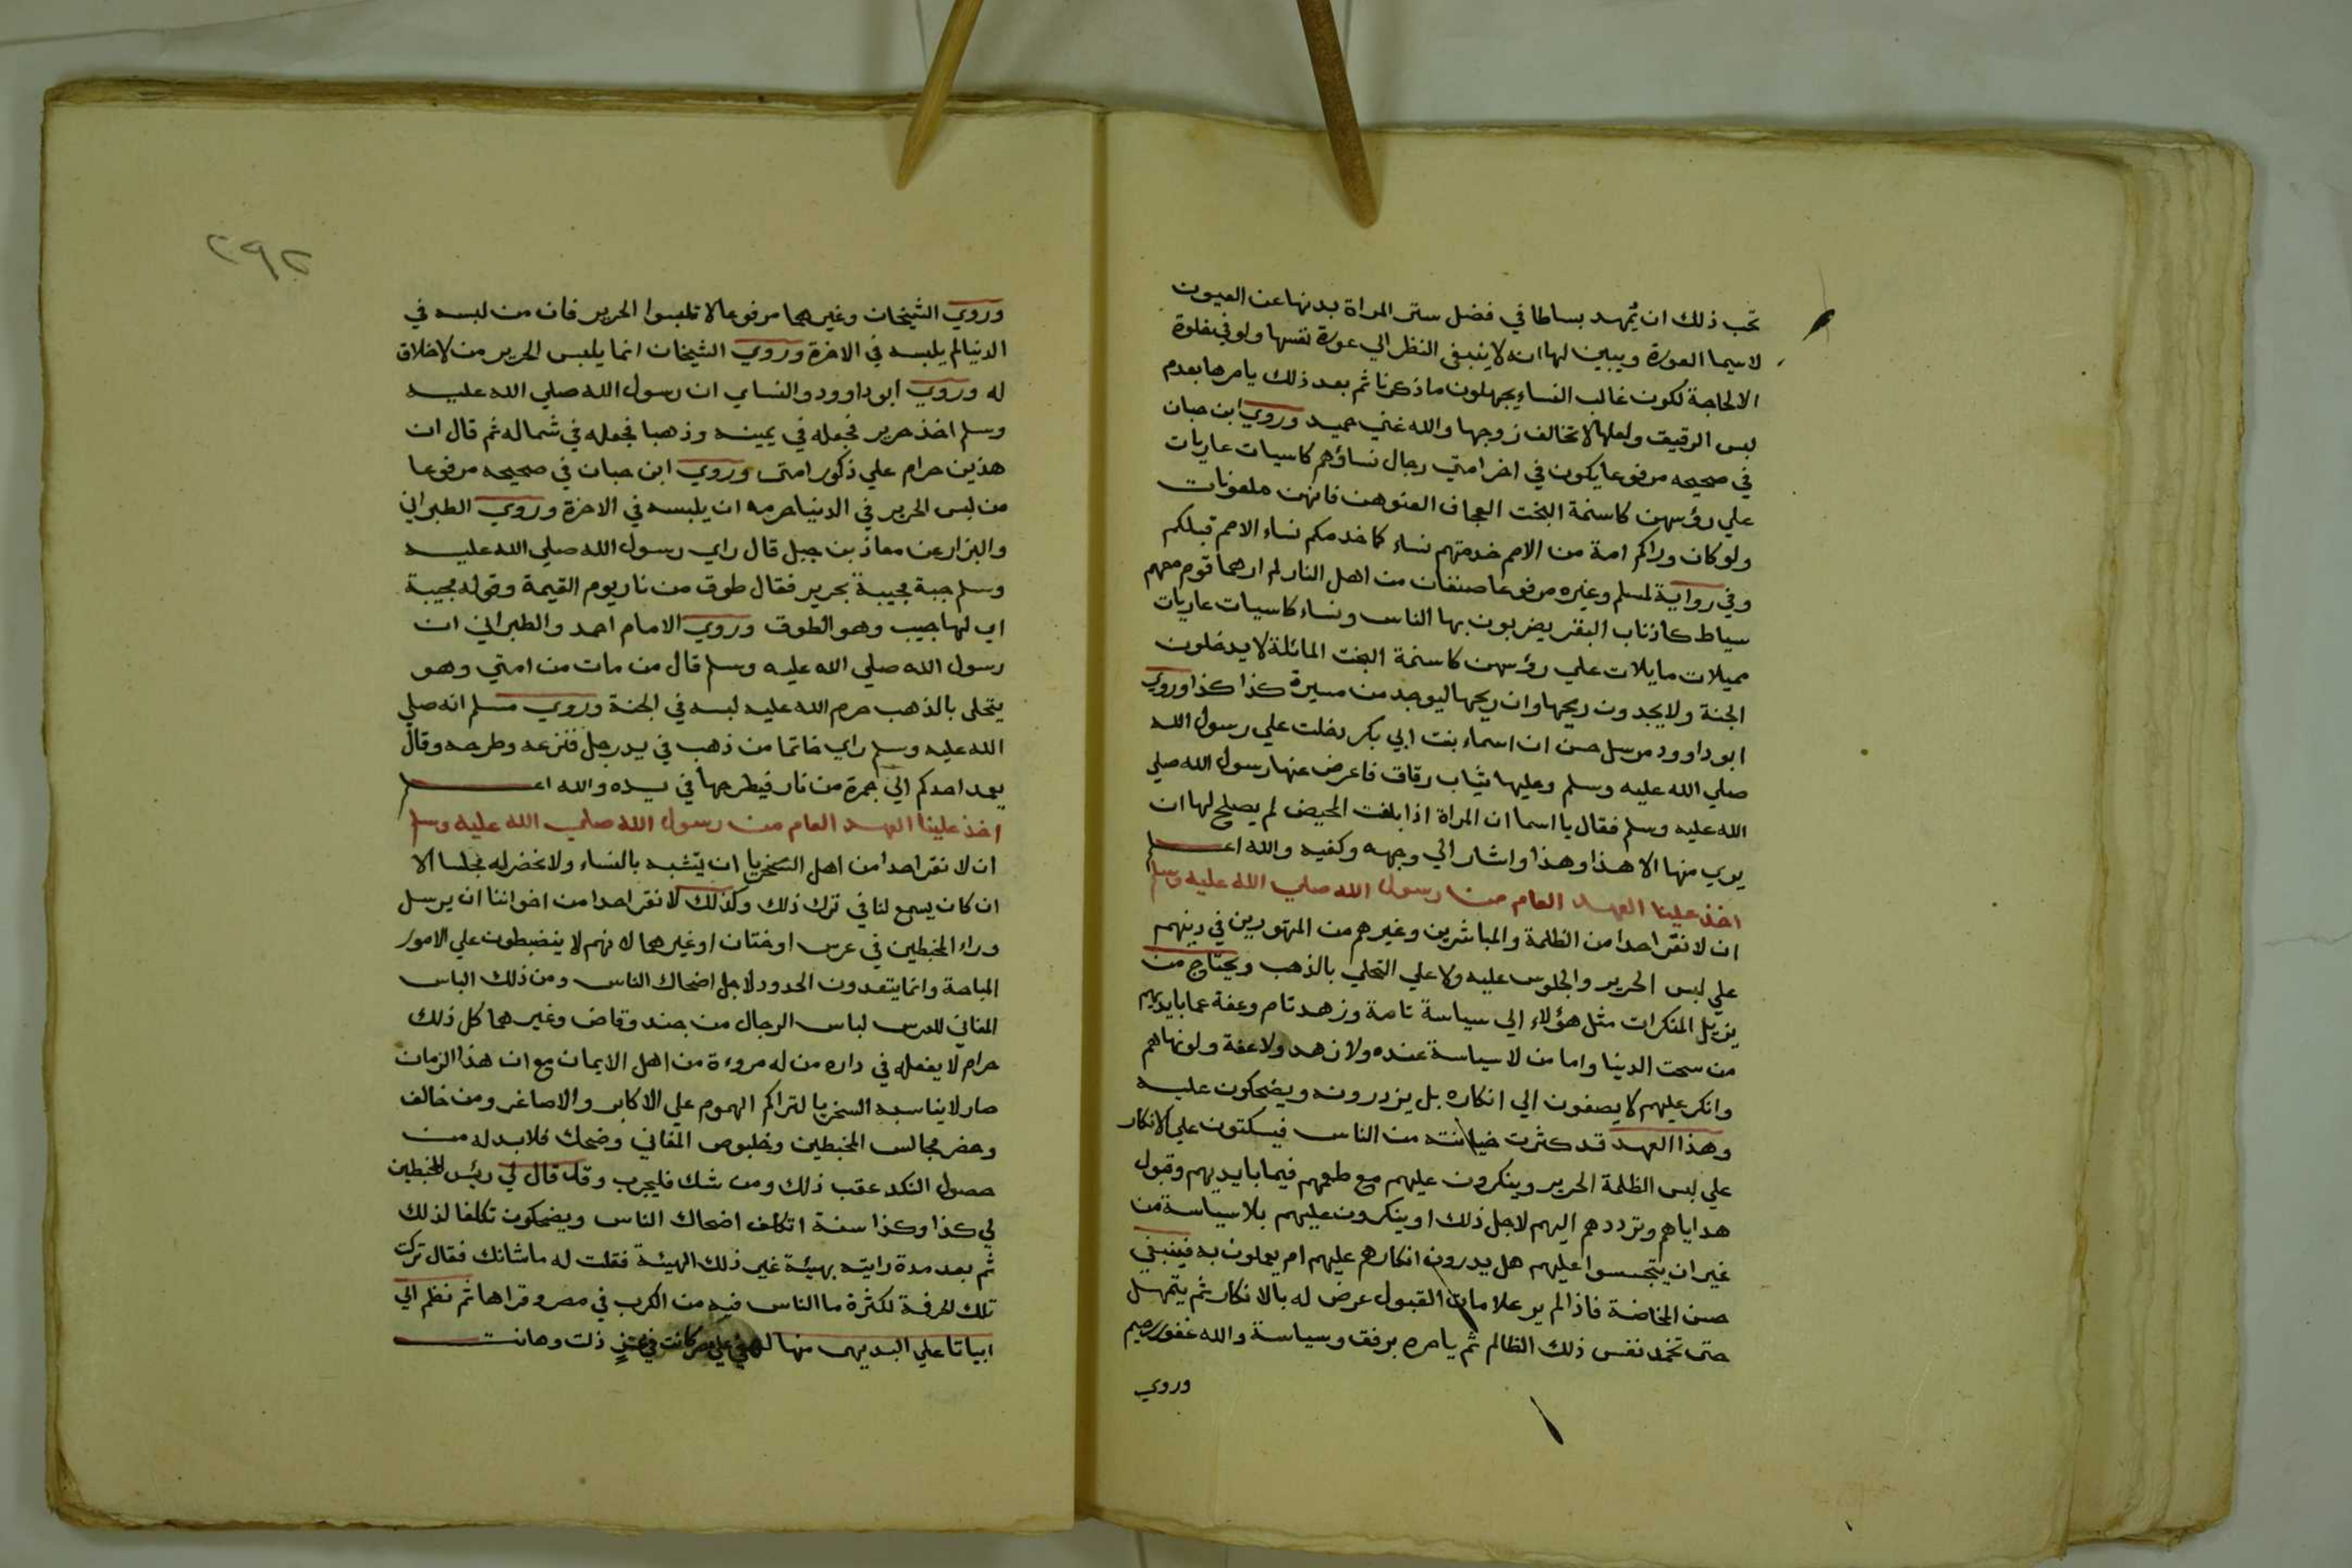 تحب ذلك ان يمهد بساطا في فضل ستر المراة بدنها عن العيون
لا سيما العورة ويبين لها انه لا ينبغي النظر الي عورة نفسها ولو في خلوة
الا لحاجة لكون غالب النساء يجهلون ما ذكرنا ثم بعد ذلك يامرها بعدم
لبس الرقيق ولعلها لا تخالف زوجها والله غني حميد وروي ابن حبان
في صحيحه مرفوعا يكون في اخر امتي رجال نساؤهم كاسيات عاريات
علي رؤسهن كاسنمة البخت العجاف العنوهن فانهن ملعونات
ولو كان وراكم امة من الامم خدمتهم نساء كما خدمكم نساء الامم قبلكم
وفي رواية لمسلم وغيره مرفوعا صنفان من اهل النار لم ارهما قوم معهم
سياط كاذناب البقر يضربون بها الناس ونساء كاسيات عاريات
مميلات مايلات علي رؤسهن كاسنمة البخت المائلة لا يدخلون
الجنة ولا يجدون ريحها وان ريحها ليوجد من مسيرة كذا كذا وروي
ابو داوود مرسل حسن ان اسماء بنت ابي بكر دخلت علي رسول الله
صلي الله عليه وسلم وعليها ثياب رقاق فاعرض عنها رسول الله صلي
الله عليه وسلم فقال يا اسما ان المراة اذا بلغت المحيض لم يصلح لها ان
يري منها الا هذا وهذا واشار الي وجهه وكفيه والله اعلم
اخذ علينا العهد العام من رسول الله صلي الله عليه وسلم
ان لا نقر احدا من الظلمة والمباشرين وغيرهم من المتهورين في دينهم
علي لبس الحرير والجلوس عليه ولا علي التحلي بالذهب ويحتاج من
يزيل المنكرات مثل هؤلاء الي سياسة تامة وزهد تام وعفة عما بايديهم
من سحت الدنيا واما من لا سياسة عنده ولا زهد ولا عفة ولو نهاهم
وانكر عليهم لا يصغون الي انكاره بل يزدرونه ويضحكون عليه
وهذا العهد قد كثرت خيانته من الناس فيسكتون علي الانكار
علي لبس الظلمة الحرير وينكرون عليهم مع طمعهم فيما بايديهم وقبول
هداياهم وترددهم اليهم لاجل ذلك او ينكرون عليهم بلا سياسة من
غير ان يتجسسوا عليهم هل يدرون انكارهم عليهم ام يعملون به فينبغي
حسن المخاضة فاذا لم ير علامات القبول عرض له بالانكار ثم يتمهل
حتى تخمد نفس ذلك الظالم ثم يامره برفق وسياسة والله غفور رحيم
وروي
٢٩٢
وروي الشيخان وغيرهما مرفوعا لا تلبسوا الحرير فان من لبسه في
الدنيا لم يلبسه في الاخرة وروي الشيخان انما يلبس الحرير من لا خلاق
له وروي ابو داوود والنساي ان رسول الله صلي الله عليه
وسلم اخذ حرير فجعله في يمينه وذهبا فجعله في شماله ثم قال ان
هذين حرام علي ذكور امتى وروي ابن حبان في صحيحه مرفوعا
من لبس الحرير في الدنيا حرمه ان يلبسه في الاخرة وروي الطبراني
والبزار عن معاذ بن جبل قال راي رسول الله صلي الله عليه
وسلم جبة مجيبة بحرير فقال طوق من نار يوم القيمة وقوله مجيبة
اي لها جيب وهو الطوق وروي الامام احمد والطبراني ان
رسول الله صلي الله عليه وسلم قال من مات من امتي وهو
يتحلى بالذهب حرم الله عليه لبسه في الجنة وروي مسلم انه صلي
الله عليه وسلم راي خاتما من ذهب في يد رجل فنزعه وطرحه وقال
يعمد احدكم الي جمرة من نار فيطرحها في يده والله اعلم
اخذ علينا العهد العام من رسول الله صلي الله عليه وسلم
ان لا نقر احدا من اهل السخريا ان يتشبه بالنساء ولا نحضر له مجلسا الا
ان كان يسمع لنا في ترك ذلك وكذلك لا نقر احدا من اخواننا ان يرسل
وراء المخبطين في عرس او ختان او غيرهما لانهم لا ينضبطون علي الامور
المباحة وانما يتعدون الحدود لاجل اضحاك الناس ومن ذلك الباس
المغاني للعرس لباس الرجال من جند وقاض وغيرهما كل ذلك
حرام لا يفعله في داره من له مروءة من اهل الايمان مع ان هذا الزمان
صار لا يناسبه السخريا لتراكم الهموم علي الاكابر والاصاغر ومن خالف
وحضر مجالس المخبطين وخلبوص المغاني وضحك فلا بد له من
حصول النكد عقب ذلك ومن شك فليجرب وقد قال لي ريئس المخبطين
لي كذا وكذا سنة اتكلف اضحاك الناس ويضحكون تكلفا لذلك
ثم بعد مدة رايته بهيئة غير ذلك الهيئة فقلت له ما شانك فقال تركت
تلك الحرفة لكثرة ما الناس فيه من الكرب في مصر وقراها ثم نظم الي
ابياتا علي البديهى منها لهفي علي مصر كانت في عز ذلت وهانت